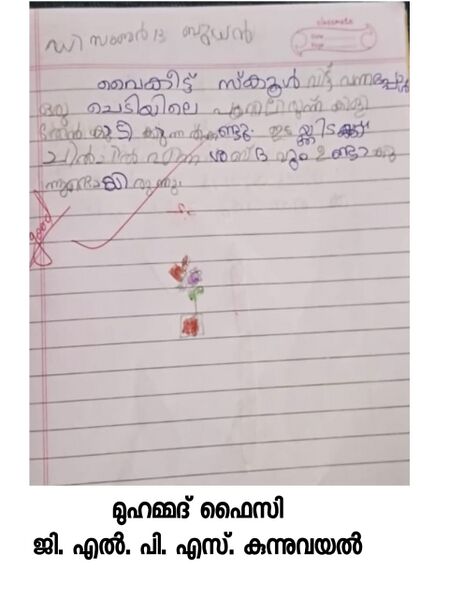 ഡിസംബർ 3 ബുധൻ
classmate
Date
Page
വൈകീട്ട് സ്കൂൾ വിട്ട് വന്നപ്പോൾ
ഒരു ചെടിയിലെ പൂവിൽ കിളി
തേൻ കുടി കുന്നത് കണ്ടു. ഇടയ്ക്കിടക്ക്
ചിൽചിൽ എന്ന ശബ്ദവും ഉണ്ടാക്കു
ന്നുണ്ടായിരുന്നു.
good
മുഹമ്മദ് ഫൈസി
ജി. എൽ. പി. എസ്. കുന്നുവയൽ